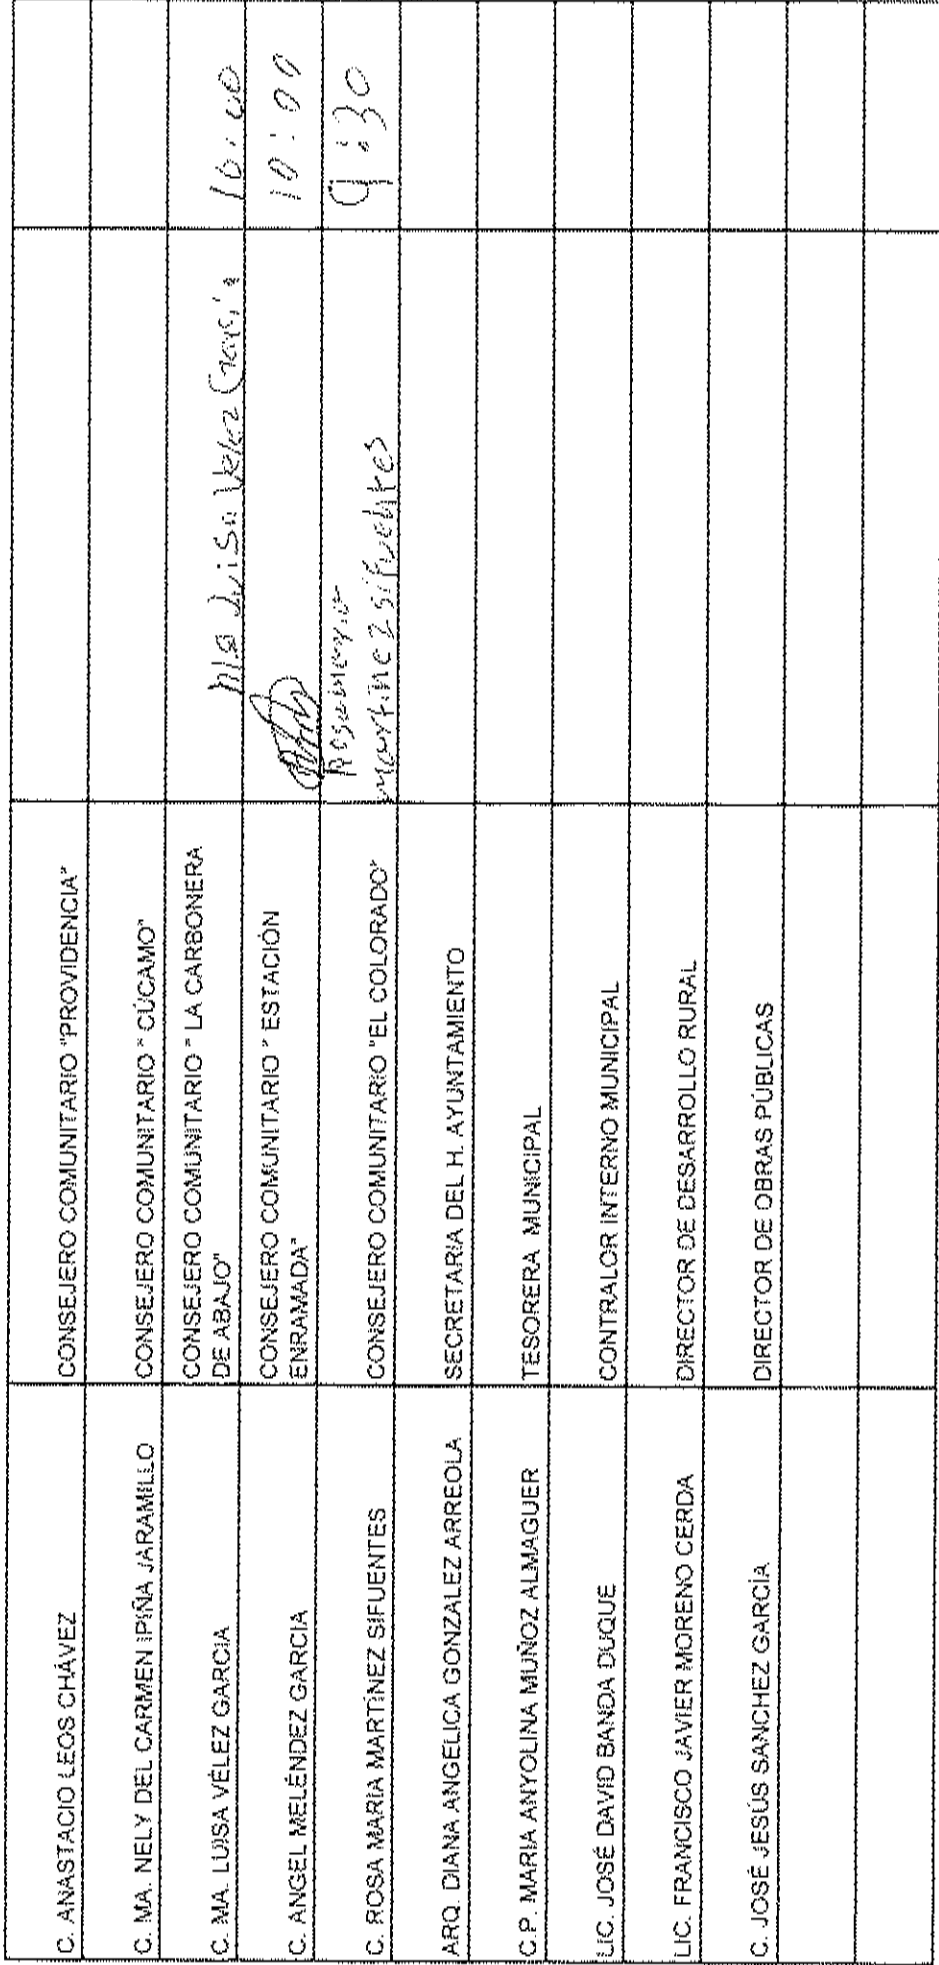 C. ANASTACIO LEOS CHÁVEZ CONSEJERO COMUNITARIO "PROVIDENCIA"
C. MA. NELY DEL CARMEN IPIÑA JARAMILLO CONSEJERO COMUNITARIO " CÚCAMO"
C. MA. LUISA VÉLEZ GARCIA CONSEJERO COMUNITARIO " LA CARBONERA
DE ABAJO" Ma Luisa Velez Garcia 10:00
C. ANGEL MELÉNDEZ GARCIA CONSEJERO COMUNITARIO " ESTACIÓN
ENRAMADA" 10:00
C. ROSA MARIA MARTÍNEZ SIFUENTES CONSEJERO COMUNITARIO "EL COLORADO" Rosa maria
martinez sifuentes 9:30
ARQ. DIANA ANGELICA GONZALEZ ARREOLA SECRETARIA DEL H. AYUNTAMIENTO
C.P. MARIA ANYOLINA MUÑOZ ALMAGUER TESORERA MUNICIPAL
LIC. JOSÉ DAVID BANDA DUQUE CONTRALOR INTERNO MUNICIPAL
LIC. FRANCISCO JAVIER MORENO CERDA DIRECTOR DE DESARROLLO RURAL
C. JOSÉ JESÚS SANCHEZ GARCÍA DIRECTOR DE OBRAS PÚBLICAS